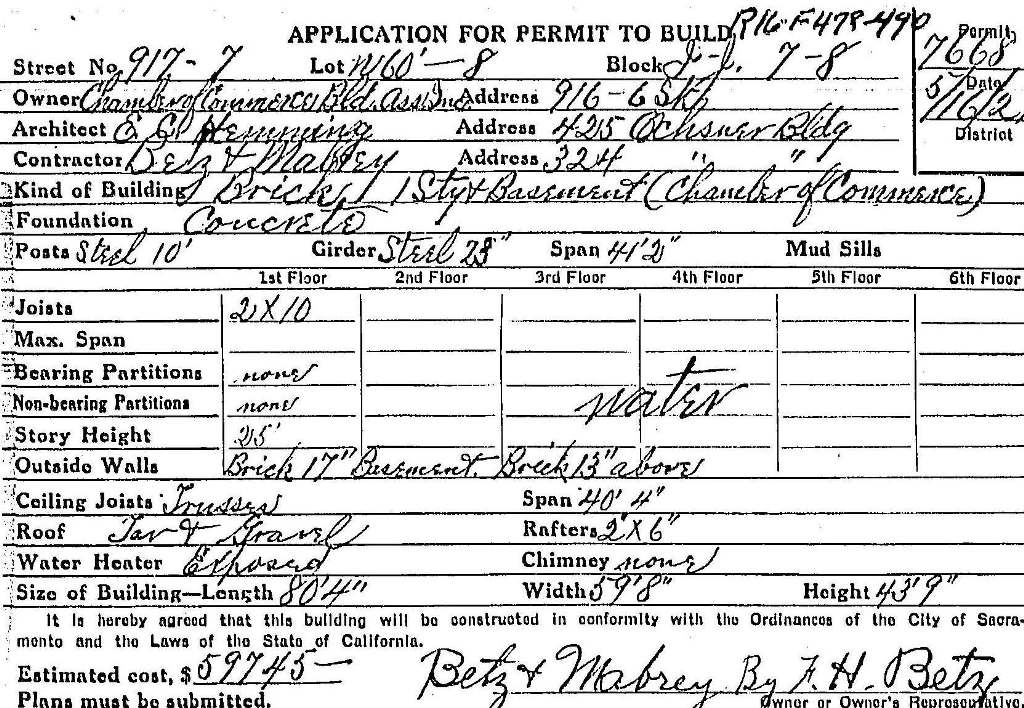 APPLICATION FOR PERMIT TO BUILD R16-F478-490
Permit
7668
Street No. 917-7 Lot N160'-8 Block I-J. 7-8
Date
5/16/2
District
Owner Chamber of Commerce Bld. Ass. Inc. Address 916-6 St
Architect E. C. Hemming Address 425 Ochsner Bldg
Contractor Betz & Mabrey Address 324 " "
Kind of Building Brick 1 Sty & Basement (Chamber of Commerce)
Foundation Concrete
Posts Steel 10' Girder Steel 28" Span 41'2" Mud Sills
1st Floor 2nd Floor 3rd Floor 4th Floor 5th Floor 6th Floor
Joists 2X10
Max. Span
Bearing Partitions none
Non-bearing Partitions none water
Story Height 25'
Outside Walls Brick 17" Basement. Brick 13" above
Ceiling Joists Trusses Span 40' 4"
Roof Tar & Gravel Rafters 2"X6"
Water Heater Exposed Chimney none
Size of Building—Length 80'4" Width 59'8" Height 43'9"
It is hereby agreed that this building will be constructed in conformity with the Ordinances of the City of Sacra-
mento and the Laws of the State of California.
Estimated cost, $ 59745— Betz & Mabrey By F. H. Betz
Plans must be submitted. Owner or Owner's Representative.